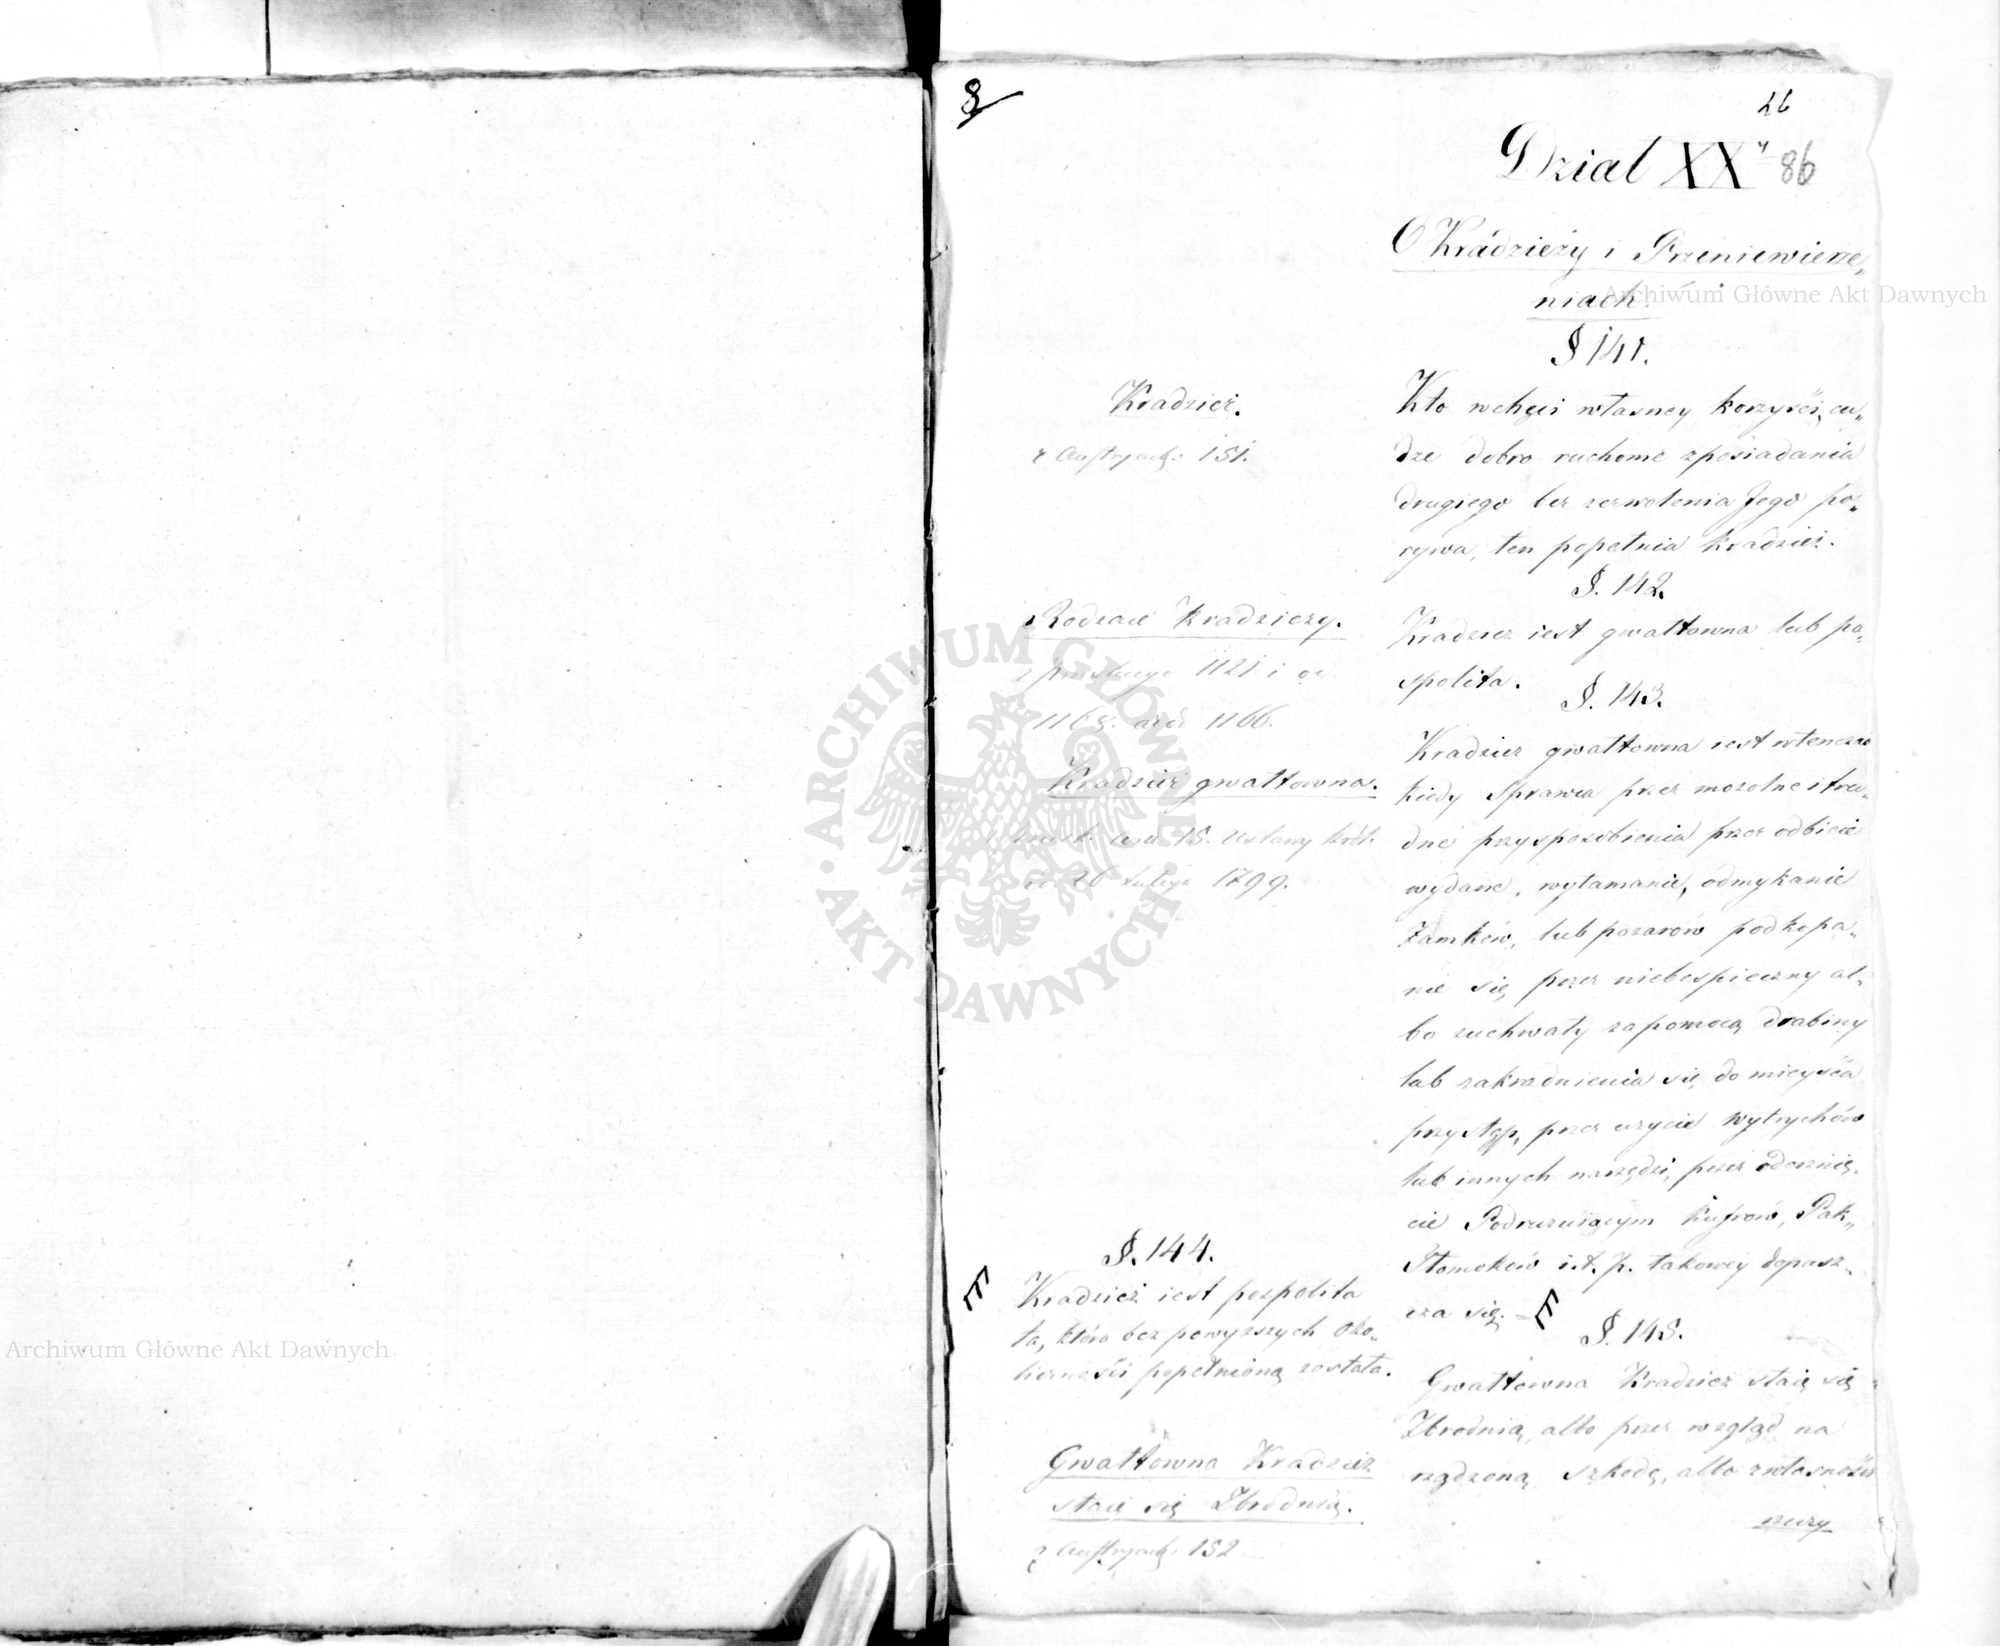 8
26
Dział XXy
86
O Kradzieży i Przeniewierze„
niach.
§ 141.
Kradzież.
z Austryack: 151.
Kto wchęci własney korzyści, cu„
dze dobro ruchome zposiadania
drugiego bez zezwolenia Jego po„
rywa, ten popełnia kradzież.
§. 142.
Rodzaie kradzieży.
z pruskiego 1121. i od
1163. aż do 1166.
Kradzież iest gwałtowna lub po„
spolita.
§. 143.
Kradzież gwałtowna.
15. Ustawy Król.
26 Lutego 1799.
Kradzież gwałtowna iest wtenczas
kiedy Sprawca przez mozolne i tru„
dne przysposobienia przez odbicie
wydarc, wyłamanie, odmykanie
Zamków, lub pozarów podkopa„
nie się, przez niebespieczny al„
bo zuchwały zapomocą drabiny
lub zakradnienia się do mieysca
przystęp, przez użycie wytrychów
lub innych narzędzi, przez oderznię„
cie Podruzuiącym Kufrów, Pak„
Tłomoków i.t.p. takowey dopusz„
cza się.
§. 144.
Kradzież iest pospolita
ta, która bez powyższych oko„
liczności popełnioną została.
§. 145.
Gwałtowna Kradzież
staie się Zbrodnią.
z Austryack: 152
Gwałtowna Kradzież staie się
Zbrodnią, albo przez wzgląd na
rządzoną szkodę, albo zwłasności
rzeczy
Archiwum Główne Akt Dawnych
Archiwum Główne Akt Dawnych
ARCHIWUM GŁÓWNE · AKT DAWNYCH ·